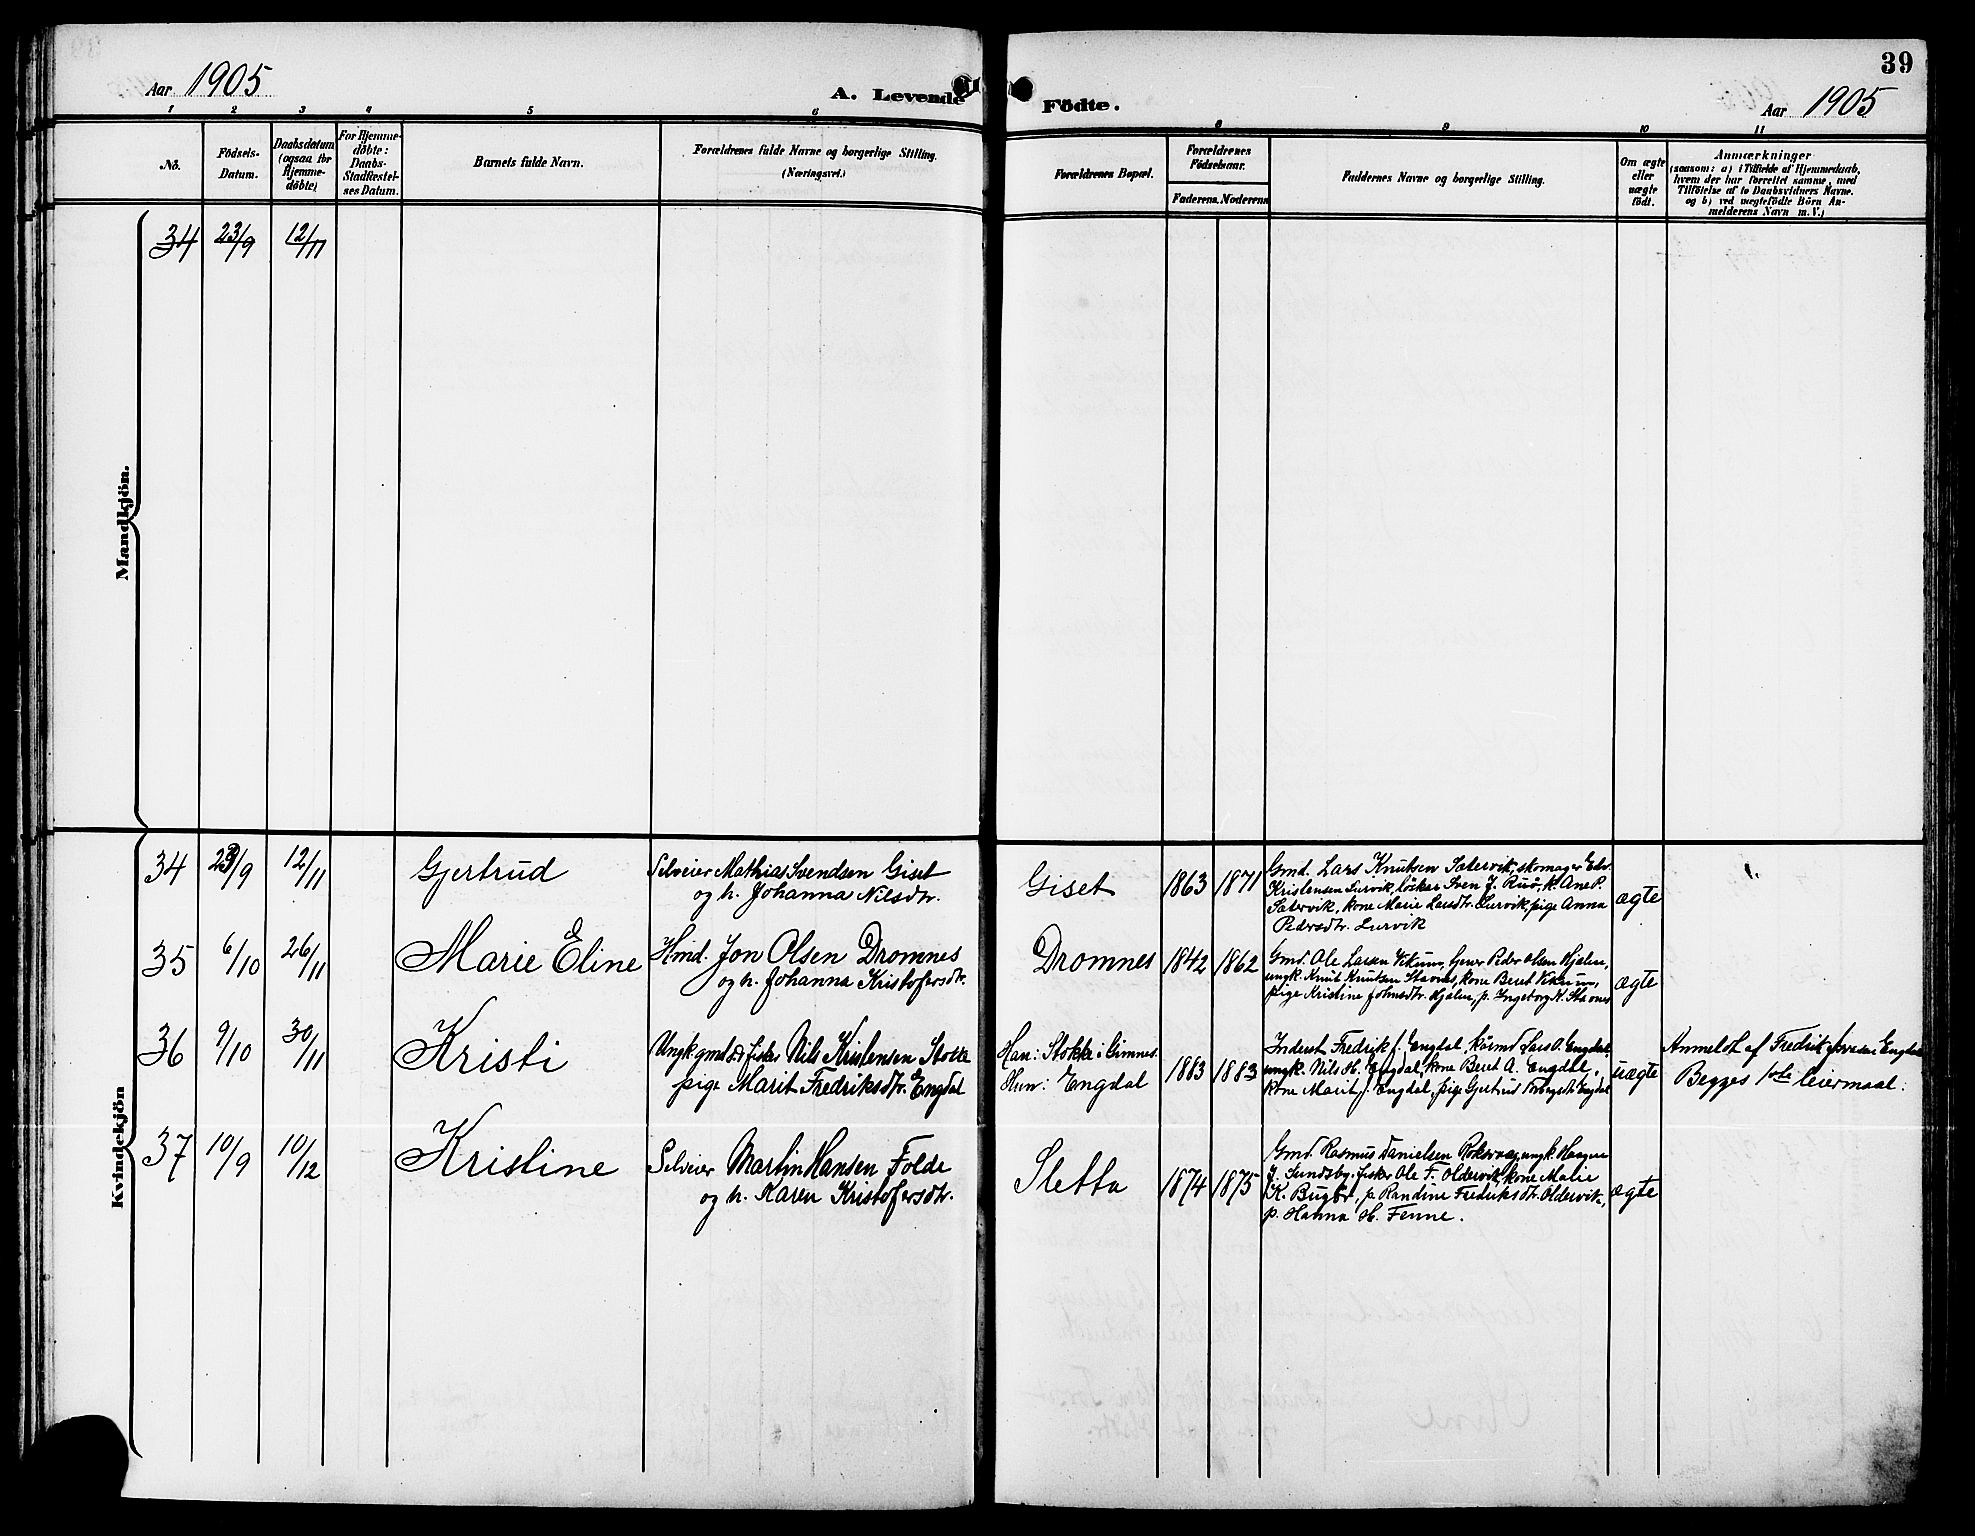 39
Aar 1905
A. Levende Födte.
Aar 1905
1 2 3 4 5 6 8 9 10 11
No.
Födsels-
Datum.
Daabsdatum
(ogsaa for
Hjemme-
döbte)
For Hjemme-
döbte:
Daabs-
Stadfæstel-
ses Datum.
Barnets fulde Navn.
Forældrenes fulde Navne og borgerlige Stilling.
(Næringsvei.)
Forældrenes Bopæl.
Forældrenes
Födselsaar.
Faderens. Moderens
Faddernes Navne og borgerlige Stilling.
Om ægte
eller
uægte
födt.
Anmærkninger
(saasom: a) i Tilfælde af Hjemmedaab,
hvem der har forrettet samme, med
Tilföielse af to Daabsvidners Navne.
og b) ved uægtefödte Börn An-
melderens Navn m. V.)
Mandkjön.
34 23/9 12/11
Kvindekjön
34 23/9 12/11 Gjertrud
Selveier Mathias Svendsen Giset
og h. Johanna Nilsdtr.
Giset 1863 1871
Gmd. Lars Knutsen Sætervik, skomager Edv.
Kristensen Lurvik, løskar Sven J. Ruö, k. Ane P.
Sætervik, kone Marie Larsdtr. Lurvik, pige Anna
Pedersdtr. Lurvik
ægte
35 6/10 26/11 Marie Eline
Hmd. Jon Olsen Dromnes
og h. Johanna Kristofersdtr.
Dromnes 1842 1862
Gmd. Ole Larsen Vikum, Peder Olsen Hjelen,
ungk. Knut Knutsen Stavnes, kone Beret Vikum,
pige Kristine Johnsdtr. Hjelen, p. Ingeborg K. Stavnes
ægte
36 9/10 30/11 Kristi
Ungk. gmd. fisker Nils Kristensen Stokke
pige Marit Fredriksdtr. Engdal
Han: Stokke i Gimnes.
Hun: Engdal
1883 1883
Inderst Fredrik J. Engdal, kårmd Lars A. Engdal,
ungk. Nils H. Engdal, kone Beret A. Engdal,
kone Marit J. Engdal, pige Gjertrud Engdal
uægte
Anmeldt af Fredrik Engdal
Begges 1ste leiermaal.
37 10/9 10/12 Kristine
Selveier Martin Hansen Folde
og h. Karen Kristofersdtr.
Sletta 1874 1875
Gmd. Rasmus Danielsen Roksvaag, ungk. Haagen
J. Sundsby, fisker Ole F. Oldervik, kone Malie
K. Bugör, p. Randine Fredriksdtr. Oldervik,
p. Hanna H. Fenne.
ægte